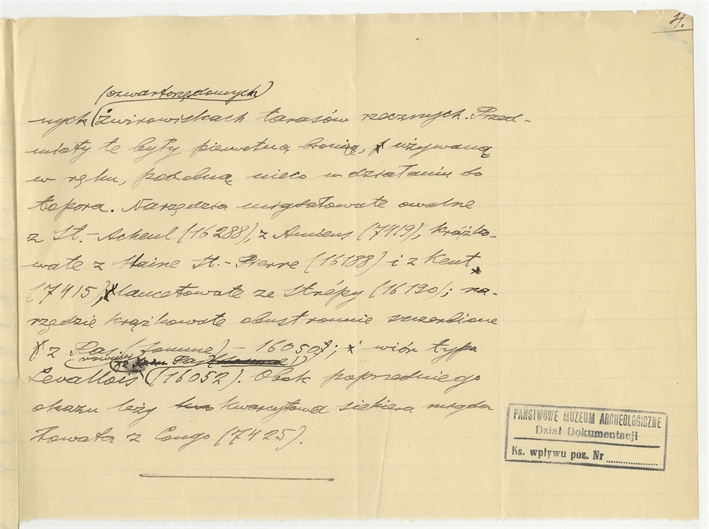 4.
(czwartorzędowych)
nych żwirowiskach tarasów rzecznych. Przed-
mioty te były pierwotną bronią, używaną
w ręku, podobną nieco w działaniu do
topora. Narzędzia migdałowate owalne
z St.-Acheul (16288), z Amiens (7419), krążko-
wate z Haine St.-Pierre (16188) i z Kent
(7415), lancetowate ze Strépy (16190); na-
rzędzie krążkowate obustronnie szczerbione
z Pas (Somme) - 16052; i wiór typu
również z Pas
Levallois (16052). Obok poprzedniego
okazu leży kwarcytowa siekiera migda
łowata z Congo (7425).
PAŃSTWOWE MUZEUM ARCHEOLOGICZNE
Dział Dokumentacji
Ks. wpływu poz. Nr